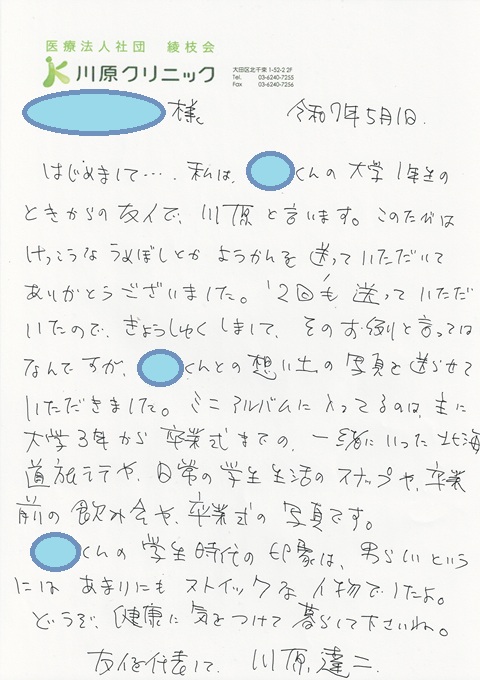 医療法人社団 綾枝会
川原クリニック
大田区北千束1-52-2 2F
Tel. 03-6240-7255
Fax 03-6240-7256
様
令和7年5月1日.
はじめまして…. 私は、くんの大学1年生の
ときからの友人で、川原と言います。このたびは
けっこうなうめぼしとかようかんを送っていただいて
ありがとうございました。'2回も送っていただ
いたので、ぎょうしゅくしまして、そのお例と言っては
なんですが、くんとの想い出の写真を送らせて
いただきました。ミニアルバムに入ってるのは、主に
大学3年から卒業式までの、一緒にいった北海
道旅行や、日常の学生生活のスナップや、卒業
前の飲み会や、卒業式の写真です。
くんの学生時代の印象は、男らしいという
にはあまりにもストイックな人物でしたよ。
どうぞ、健康に気をつけて暮らして下さいね。
友人を代表して、川原達二